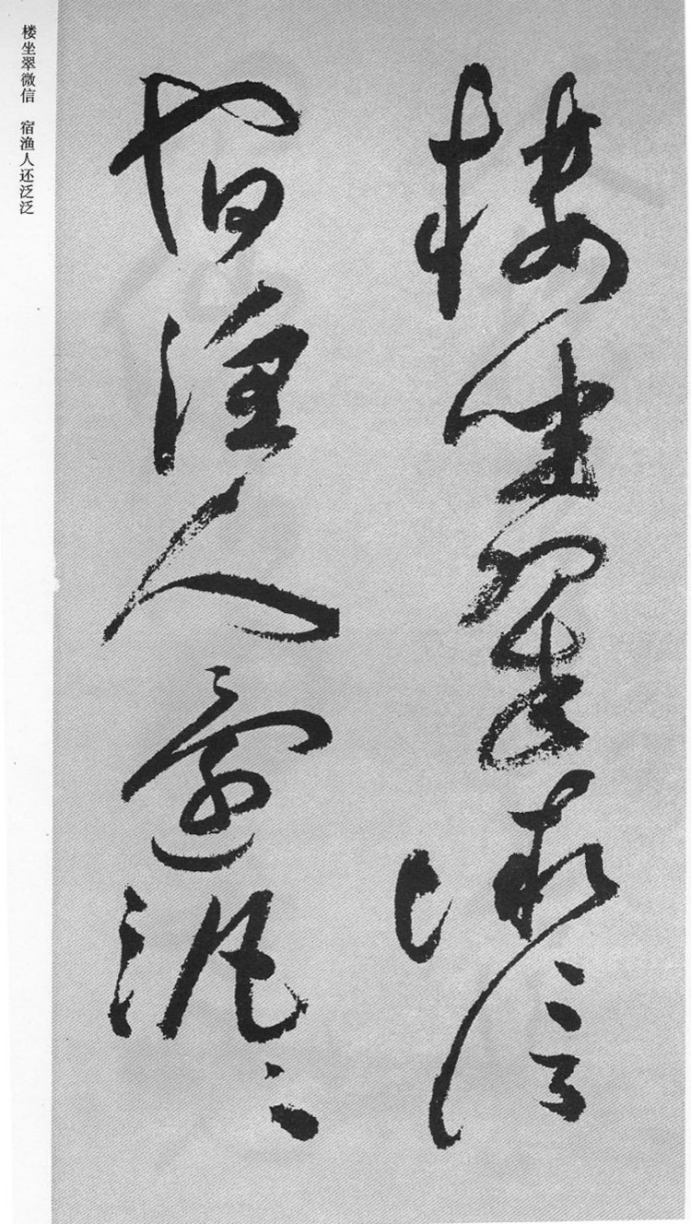 樓坐翠微信
宿漁人還泛〻
楼坐翠微信　宿渔人还泛泛